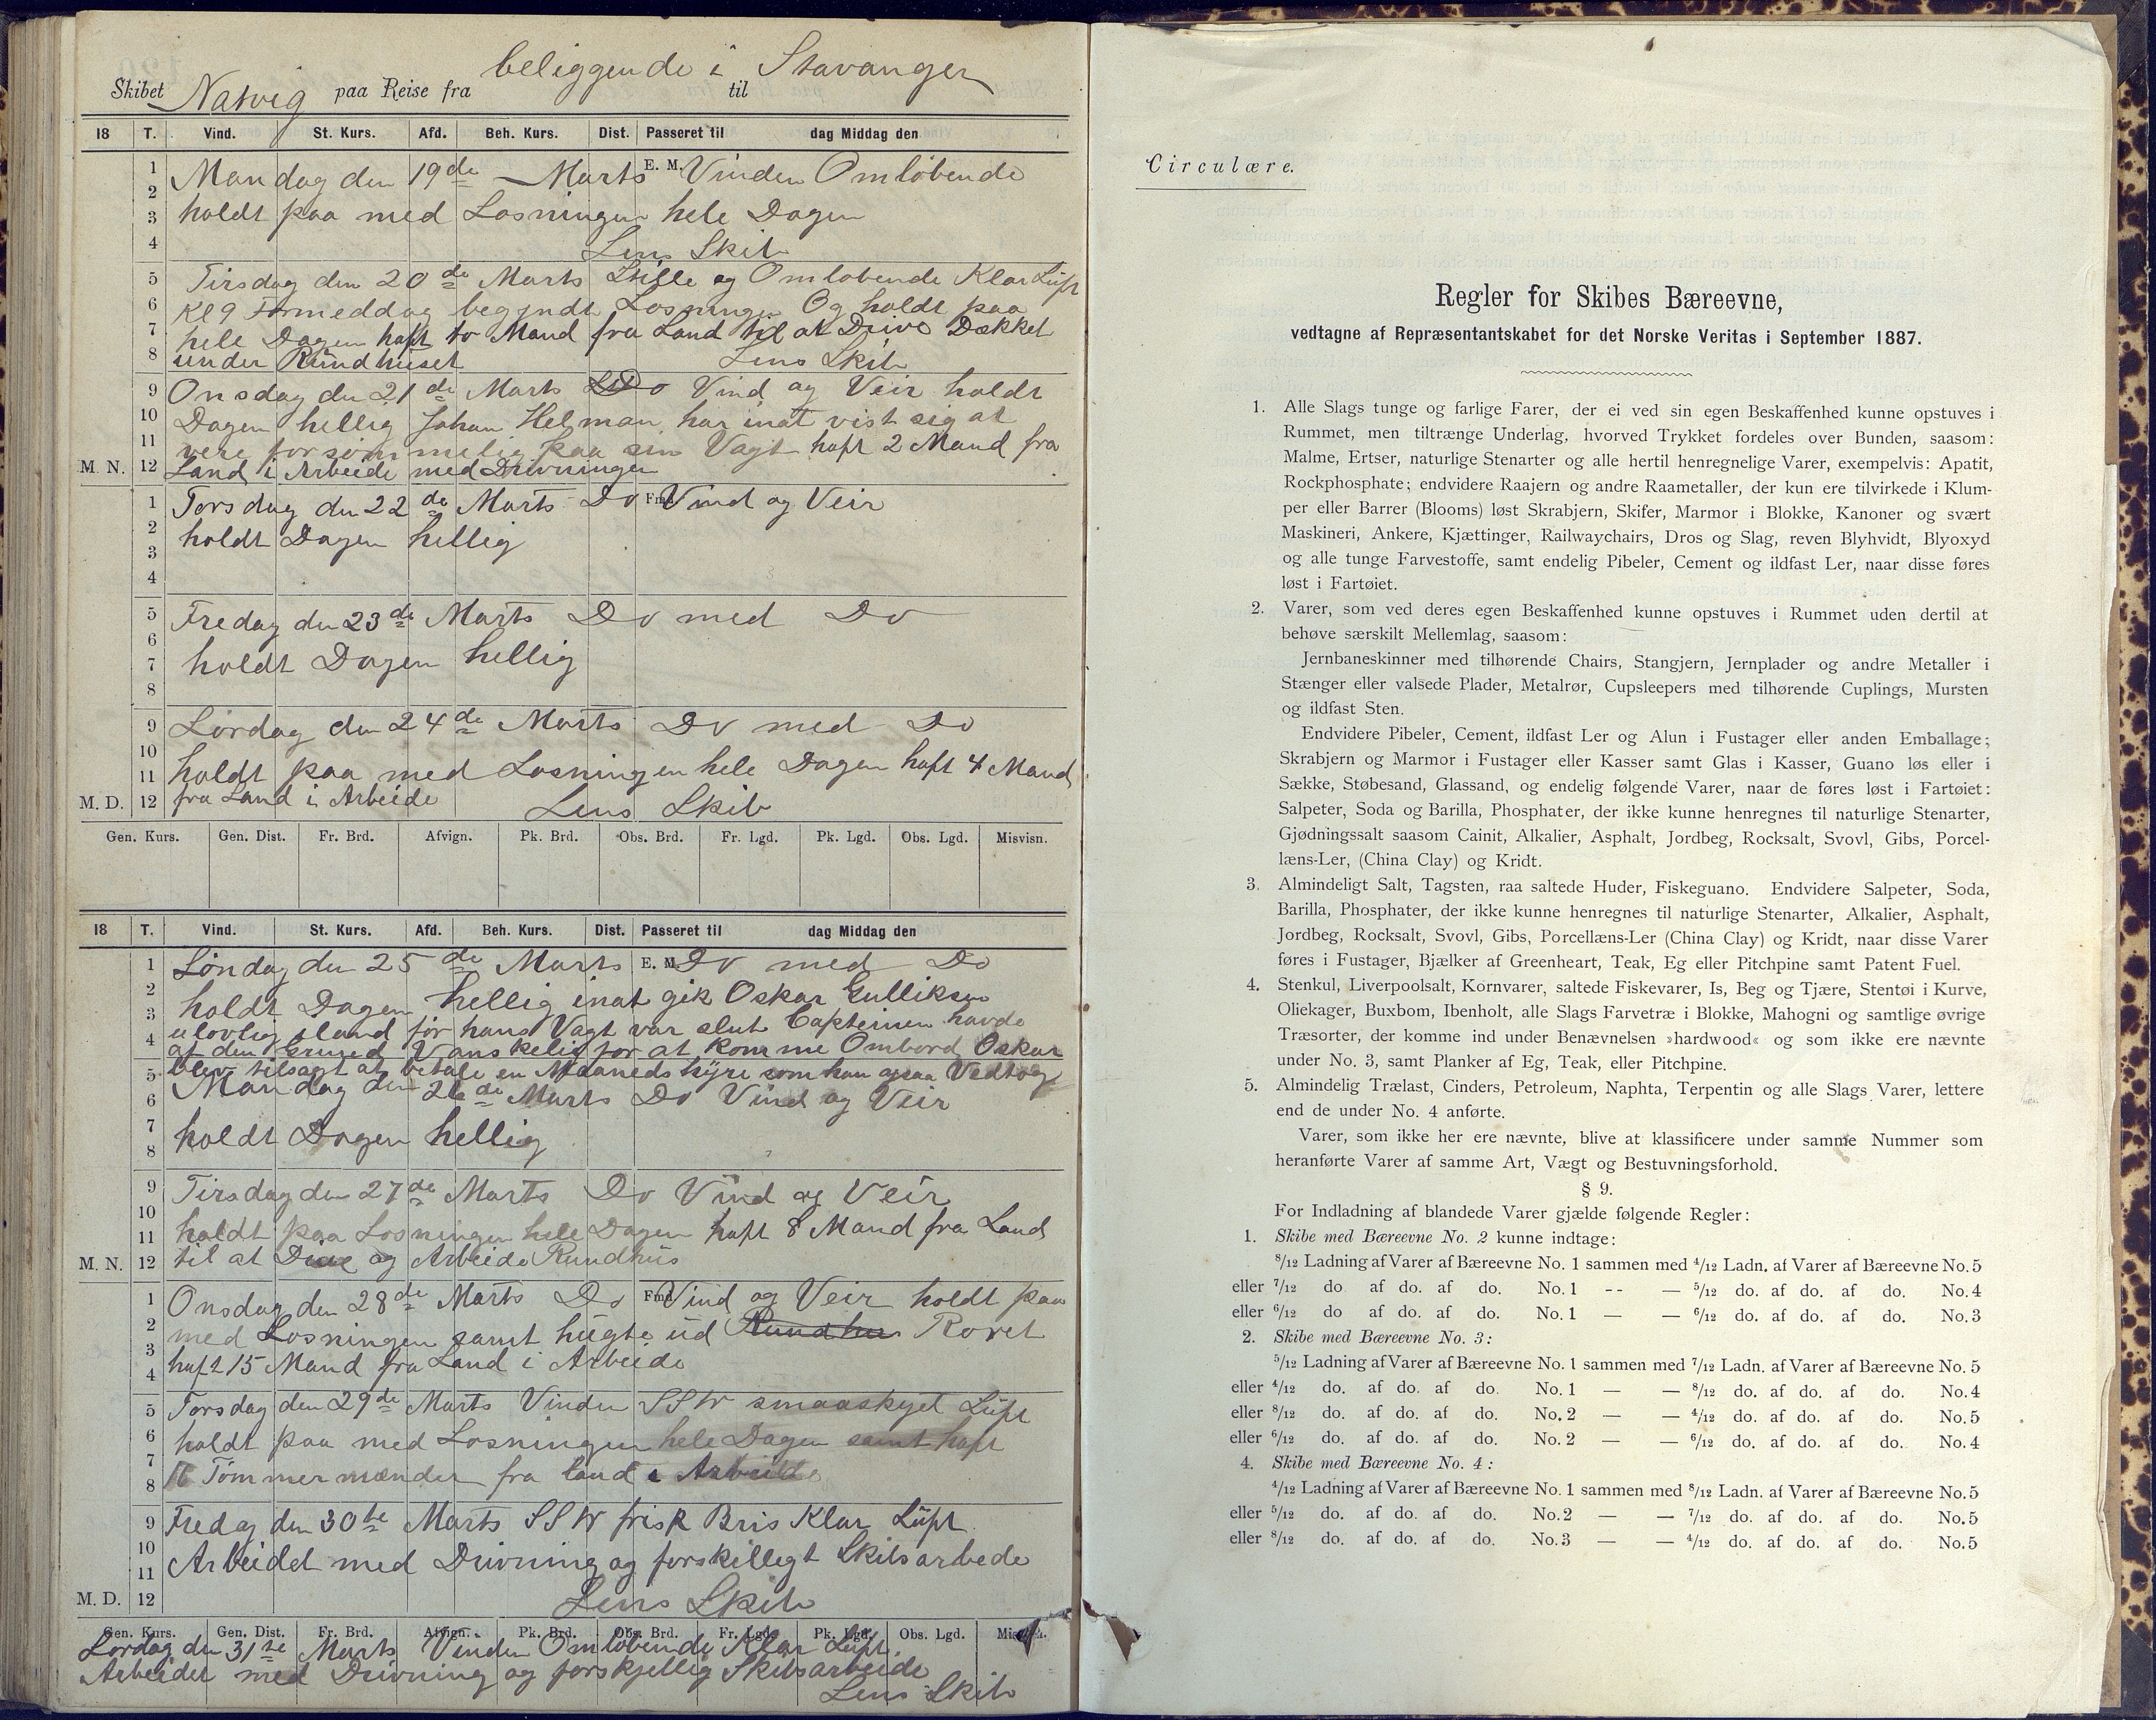 beliggende i Stavanger
Skibet Natvig paa Reise fra til
18 T. Vind. St. Kurs. Afd. Beh. Kurs. Dist. Passeret til dag Middag den
1 Mandag den 19de Marts E. M. Vinden Omløbende
2
3 holdt paa med Losningen hele Dagen
4 Lens Skib
5 Tirsdag den 20de Marts Stille og Omløbende Klar Luft
6 Kl 9 Formeddag begyndt Losningen Og holdt paa
7 hele Dagen haft to Mand fra Land til at Drive Dækket
8 under Rundhuset Lens Skib
9 Onsdag den 21de Marts Do Vind og Veir holdt
10 Dagen hellig Johan Helman har inat vist sig at
11 vere forsømmelig paa sin Vagt haft 2 Mand fra
M. N. 12 Land i Arbeide med Drivningen
1 Torsdag den 22de Marts Do Fmd. Vind og Veir
2 holdt Dagen hellig
3
4
5 Fredag den 23de Marts Do med Do
6
7 holdt Dagen hellig
8
9 Lørdag den 24de Marts Do med Do
10
11 holdt paa med Losningen hele Dagen haft 4 Mand
M. D. 12 fra Land i Arbeide Lens Skib
Gen. Kurs. Gen. Dist. Fr. Brd. Afvign. Pk. Brd. Obs. Brd. Fr. Lgd. Pk. Lgd. Obs. Lgd. Misvisn.
18 T. Vind. St. Kurs. Afd. Beh. Kurs. Dist. Passeret til dag Middag den
1 Søndag den 25de Marts E. M. Do med Do
2 holdt Dagen hellig inat gik Oskar Gulliksen
3 ulovlig iland før hans Vagt var slut Capteinen havde
4 af den Grund Vanskelig for at komme Ombord Oskar
5 blev tilsagt at betale en Maaneds hyre som han ogsaa Vedtog
6 Mandag den 26de Marts Do Vind og Veir
7 holdt Dagen hellig
8
9 Tirsdag den 27de Marts Do Vind og Veir
10
11 holdt paa Losningen hele Dagen haft 8 Mand fra Land
M. N. 12 til at Drive og Arbeide Rundhus
1 Onsdag den 28de Marts Do Fmd. Vind og Veir holdt paa
2 med Losningen samt hugte ud Rundhus Roret
3
4 haft 15 Mand fra Land i Arbeide
5 Torsdag den 29de Marts Vinden SSW smaaskyet Luft
6 holdt paa med Losningen hele Dagen samt haft
7
8 Tømmermænder fra land i Arbeide
9 Fredag den 30te Marts SSW frisk Bris Klar Luft
10
11 Arbeidet med Drivning og forskelligt Skibsarbede
M. D. 12 Lens Skib
Gen. Kurs. Gen. Dist. Fr. Brd. Afvign. Pk. Brd. Obs. Brd. Fr. Lgd. Pk. Lgd. Obs. Lgd. Misvisn.
Lørdag den 31te Marts Vinden Omløbende Klar Luft
Arbeidet med Drivning og forskjellig Skibsarbeide
Lens Skib
Circulære.
Regler for Skibes Bæreevne,
vedtagne af Repræsentantskabet for det Norske Veritas i September 1887.
1. Alle Slags tunge og farlige Farer, der ei ved sin egen Beskaffenhed kunne opstuves i
Rummet, men tiltrænge Underlag, hvorved Trykket fordeles over Bunden, saasom:
Malme, Ertser, naturlige Stenarter og alle hertil henregnelige Varer, exempelvis: Apatit,
Rockphosphate; endvidere Raajern og andre Raametaller, der kun ere tilvirkede i Klum-
per eller Barrer (Blooms) løst Skrabjern, Skifer, Marmor i Blokke, Kanoner og svært
Maskineri, Ankere, Kjættinger, Railwaychairs, Dros og Slag, reven Blyhvidt, Blyoxyd
og alle tunge Farvestoffe, samt endelig Pibeler, Cement og ildfast Ler, naar disse føres
løst i Fartøiet.
2. Varer, som ved deres egen Beskaffenhed kunne opstuves i Rummet uden dertil at
behøve særskilt Mellemlag, saasom:
Jernbaneskinner med tilhørende Chairs, Stangjern, Jernplader og andre Metaller i
Stænger eller valsede Plader, Metalrør, Cupsleepers med tilhørende Cuplings, Mursten
og ildfast Sten.
Endvidere Pibeler, Cement, ildfast Ler og Alun i Fustager eller anden Emballage;
Skrabjern og Marmor i Fustager eller Kasser samt Glas i Kasser, Guano løs eller i
Sække, Støbesand, Glassand, og endelig følgende Varer, naar de føres løst i Fartøiet:
Salpeter, Soda og Barilla, Phosphater, der ikke kunne henregnes til naturlige Stenarter,
Gjødningssalt saasom Cainit, Alkalier, Asphalt, Jordbeg, Rocksalt, Svovl, Gibs, Porcel-
læns-Ler, (China Clay) og Kridt.
3. Almindeligt Salt, Tagsten, raa saltede Huder, Fiskeguano. Endvidere Salpeter, Soda,
Barilla, Phosphater, der ikke kunne henregnes til naturlige Stenarter, Alkalier, Asphalt,
Jordbeg, Rocksalt, Svovl, Gibs, Porcellæns-Ler (China Clay) og Kridt, naar disse Varer
føres i Fustager, Bjælker af Greenheart, Teak, Eg eller Pitchpine samt Patent Fuel.
4. Stenkul, Liverpoolsalt, Kornvarer, saltede Fiskevarer, Is, Beg og Tjære, Stentøi i Kurve,
Oliekager, Buxbom, Ibenholt, alle Slags Farvetræ i Blokke, Mahogni og samtlige øvrige
Træsorter, der komme ind under Benævnelsen »hardwood« og som ikke ere nævnte
under No. 3, samt Planker af Eg, Teak, eller Pitchpine.
5. Almindelig Trælast, Cinders, Petroleum, Naphta, Terpentin og alle Slags Varer, lettere
end de under No. 4 anførte.
Varer, som ikke her ere nævnte, blive at klassificere under samme Nummer som
heranførte Varer af samme Art, Vægt og Bestuvningsforhold.
§ 9.
For Indladning af blandede Varer gjælde følgende Regler:
1. Skibe med Bæreevne No. 2 kunne indtage:
8/12 Ladning af Varer af Bæreevne No. 1 sammen med 4/12 Ladn. af Varer af Bæreevne No. 5
eller 7/12 do af do. af do. No. 1 -- — 5/12 do. af do. af do. No. 4
eller 6/12 do af do. af do. No. 1 — — 6/12 do. af do. af do. No. 3
2. Skibe med Bæreevne No. 3:
5/12 Ladning af Varer af Bæreevne No. 1 sammen med 7/12 Ladn. af Varer af Bæreevne No. 5
eller 4/12 do. af do. af do. No. 1 — — 8/12 do. af do. af do. No. 4
eller 8/12 do. af do. af do. No. 2 — — 4/12 do. af do. af do. No. 5
eller 6/12 do. af do. af do. No. 2 — — 6/12 do. af do. af do. No. 4
4. Skibe med Bæreevne No. 4:
4/12 Ladning af Varer af Bæreevne No. 1 sammen med 8/12 Ladn. af Varer af Bæreevne No. 5
eller 5/12 do. af do. af do. No. 2 — — 7/12 do. af do. af do. No. 5
eller 8/12 do. af do. af do. No. 3 — — 4/12 do. af do. af do. No. 5